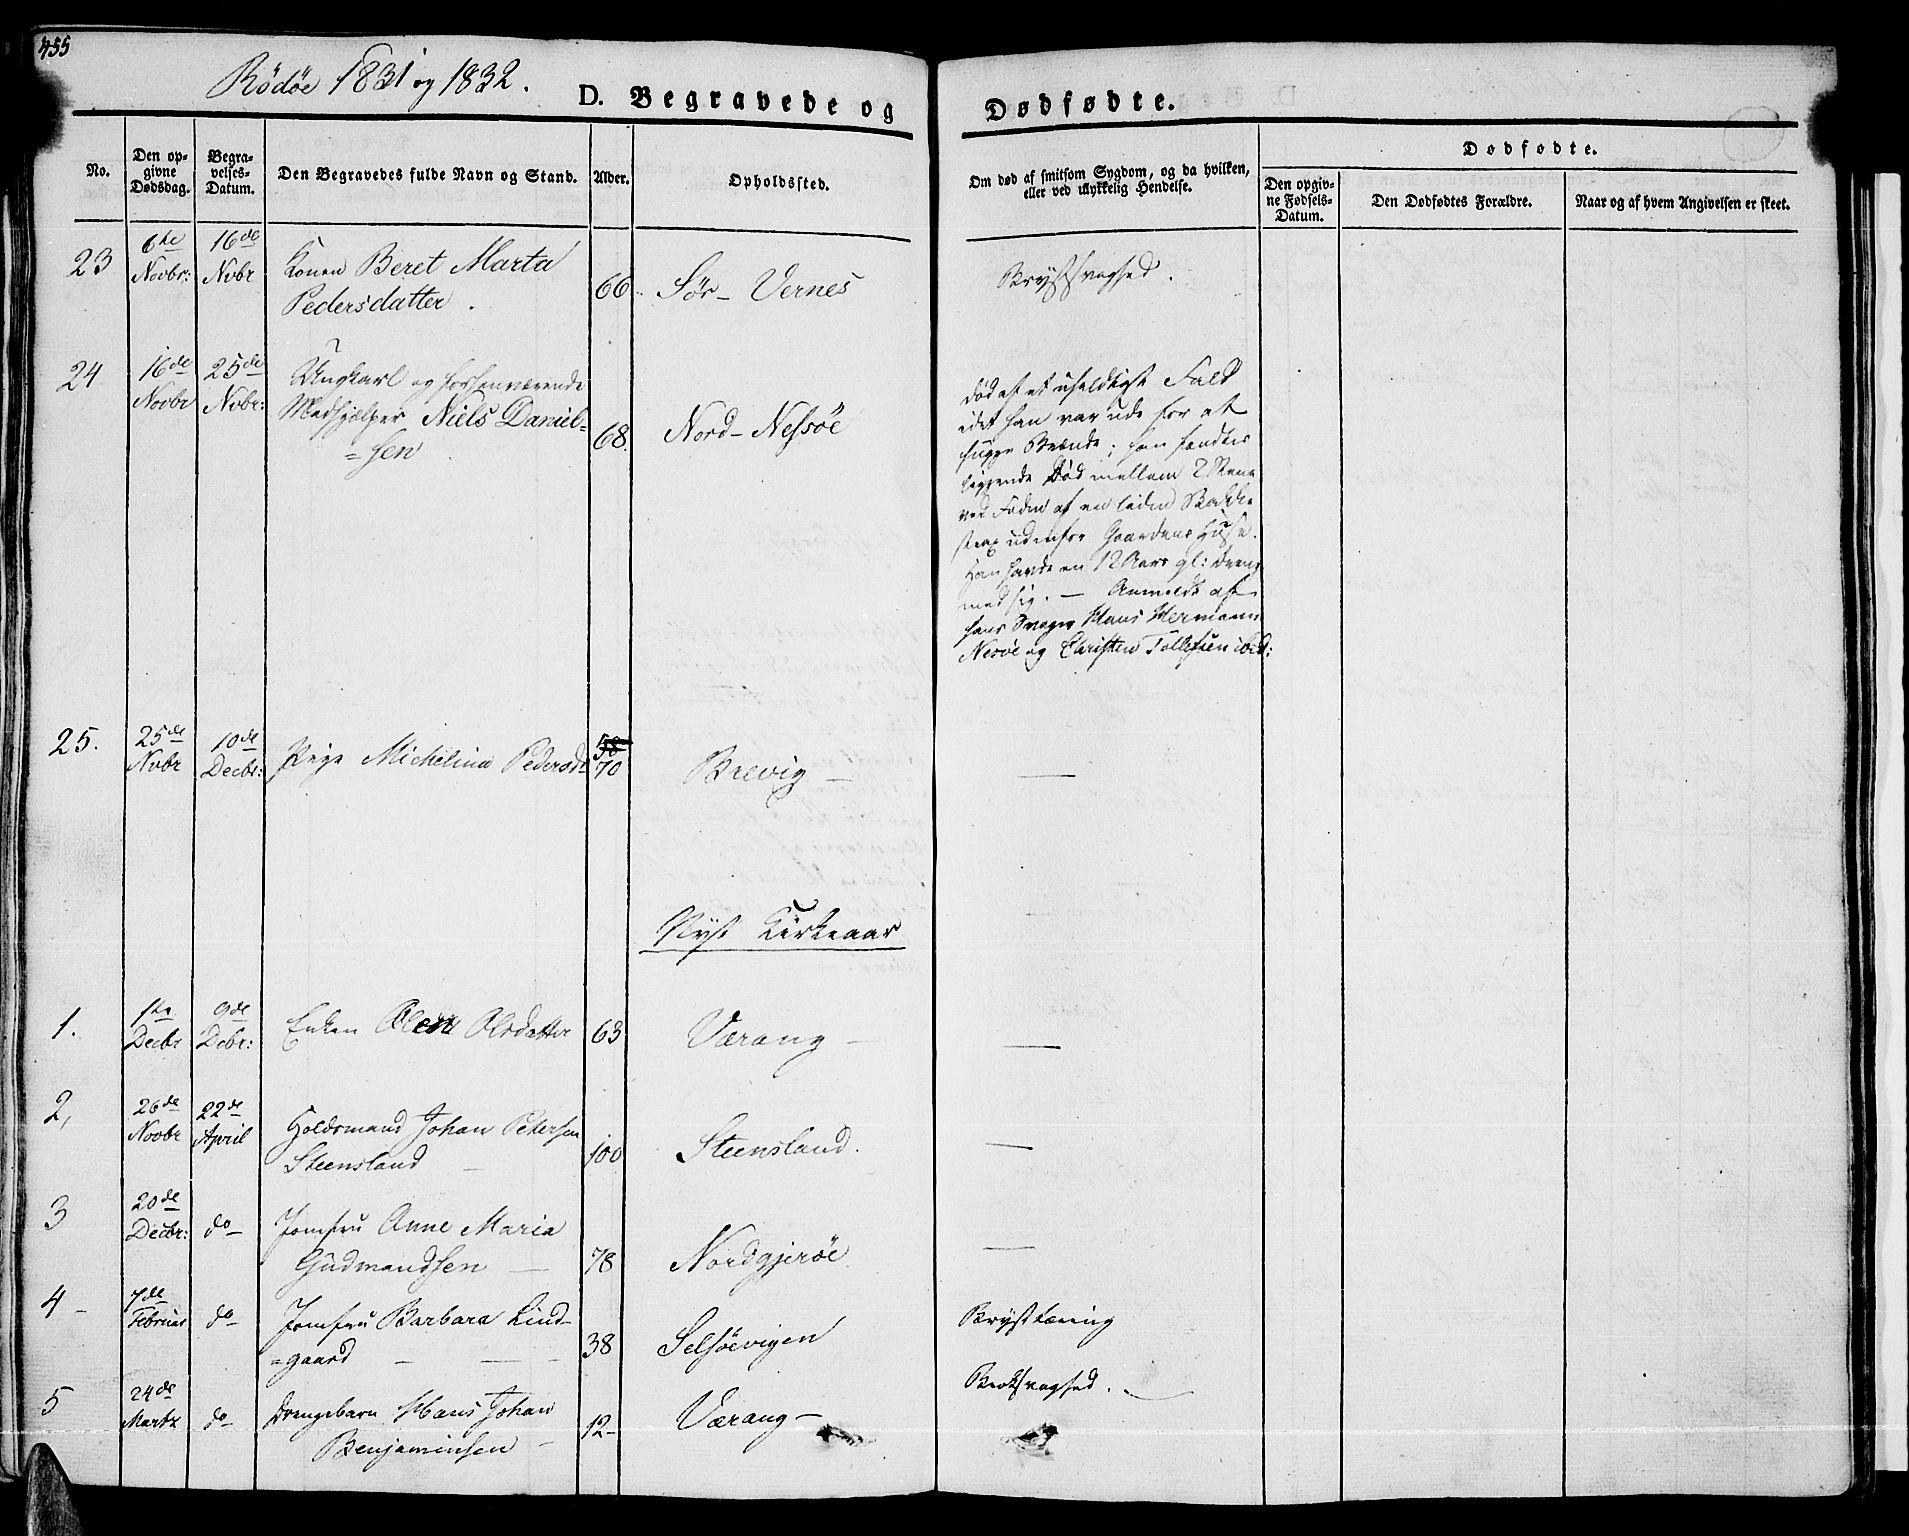 455
Rödöe 1831 og 1832.
D. Begravede og Dødfødte.
No.
Den opgivne Dødsdag.
Begravelses-Datum.
Den Begravedes fulde Navn og Stand.
Alder.
Opholdssted.
Om død af smitsom Sygdom, og da hvilken,
eller ved ulykkelig Hendelse.
Dødfødte.
Den opgivne Fødsels-Datum.
Den Dødfødtes Forældre.
Naar og af hvem Angivelsen er skeet.
23 6te Novbr: 16de Nvbr Konen Beret Marta
Pedersdatter. 66 Sör-Vernes Brystsvaghed.
24 16de Novbr 25de Nvbr: Ungkarl og forhenværende
Medhjelper Niels Daniel-
=sen 68. Nord-Nessöe
död af et uheldigt Fald
idet han var ude for at
hugge Brænde; han fandtes
liggende Död mellem 2 Stene
ved Foden af en liden Bakke
strax udenfor Gaardens Huse.
Han havde en 12 Aars gl: Dreng
med sig. — Anmeldt af
hans Svoger Hans Hermans
Nesöe og Christen Tollefsen ibid:
25. 25de Nvbr 10de Decbr: Pige Michelina Pedersdr 58 70 Brevig — —
Nyt Kirkeaar
1. 1te Decbr 9de Dcbr: Enken Olsdatter 63 Værang — —
2, 26de Novbr 22de April Johan Petersen
Steensland — 100 Steensland. —
3 20de Decbr: do Jomfru Anne Maria
Gudmandsen — 78 Nordgjeröe —
4 - 7de Februar do Jomfru Barbara Lind-
=gaard — — — 38 Selsöevigen Brysttæring
5 24de Martz do Drengebarn Hans Johan
Benjaminsen — 12- Værang —